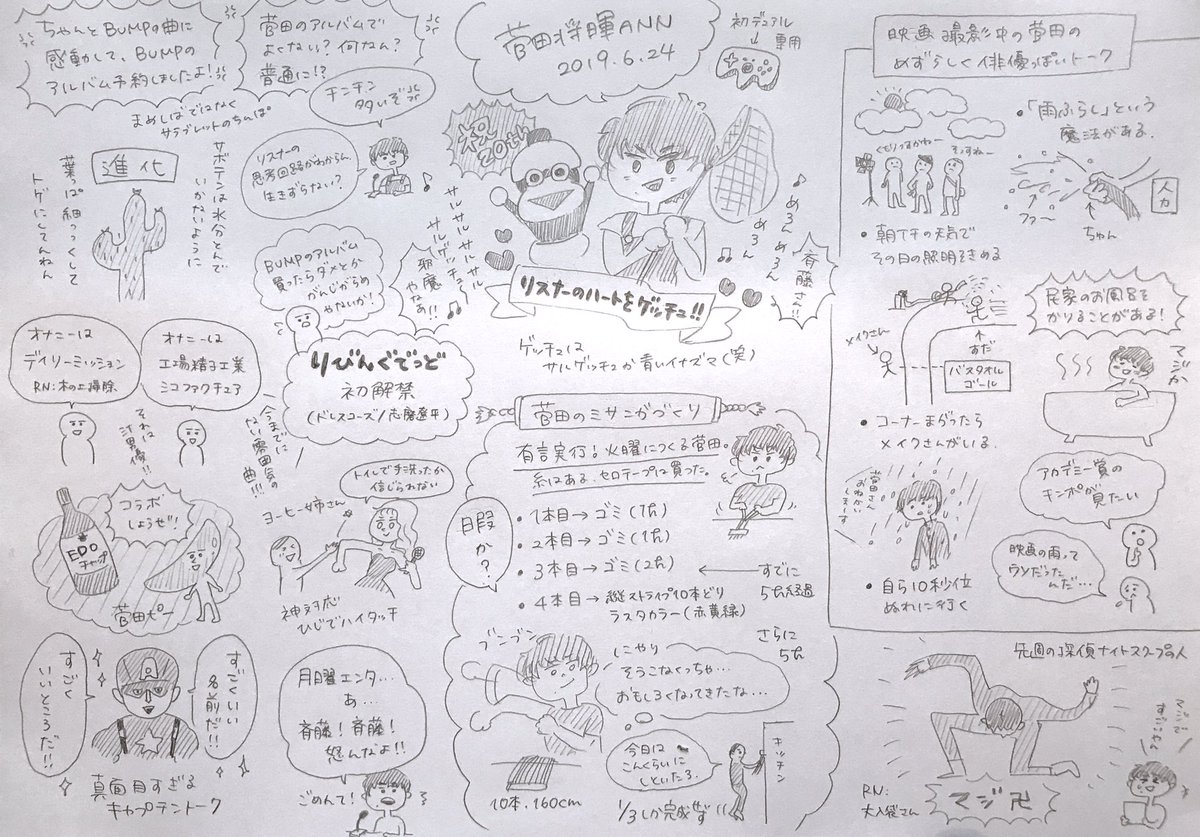 ちゃんとBUMPの曲に
感動して、BUMPの
アルバム予約しましたよ!
菅田のアルバムで
よくない?何なん?
普通に!?
チンチン
多いぞ
まめしばではなく
サラブレットのちんぽ
リスナーの
思考回路がわからん
生きづらない?
進化
サボテンは水分とんで
いかないように
葉っぱ細っっくして
トゲにしてんねん
BUMPのアルバム
買ったらダメとか
がんじがらめ
やないか!
サルサルサルサル
サルゲッチュ♪
邪魔
やなぁ!!
菅田将暉ANN
2019.6.24
初デュアル
専用
祝
20th
♪めろんめろん
めろん
斉藤さん!!
リスナーのハートをゲッチュ!!
ゲッチュは
サルゲッチュか青いイナズマ(笑)
オナニーは
デイリーミッション
RN:木の上掃除
オナニーは
工場精子工業
シコファクチュア
それは
汁男優!!
りびんぐでっど
初解禁
(ドレスコーズ/志磨遼平)
今までに
ない雰囲気の
曲!!!
コラボ
しようぜ!
EDO
チャップ
菅田ピー
トイレで手洗ったか
信じられない
ヨーヒー姉さん
神対応
ひじでハイタッチ
すごくいい
名前だ!!
すごく
いいところだ!!
真面目すぎる
キャプテントーク
月曜エンタ…
あ…
斉藤!斉藤!
怒んなよ!!
ごめんて!
菅田のミサンガづくり
有言実行!火曜につくる菅田。
糸はある、セロテープは買った。
暇
か?
・1本目→ゴミ(1h)
・2本目→ゴミ(1h)
・3本目→ゴミ(2h)
すでに
5h経過
・4本目→縦ストライプ10本どり
ラスタカラー(赤黄緑)
さらに
5h
ブンブン
にやり
そうこなくっちゃ…
おもしろくなってきたな…
今日は
こんくらいに
しといたろ
キッチン
10本、160cm
1/3しか完成せず
映画撮影中の菅田の
めずらしく俳優っぽいトーク
くもりっすかねー
そっすねー
・朝イチの天気で
その日の照明をきめる
・「雨ふらし」という
魔法がある。
ファ〜
ちゃん
人力
メイクさん
すだ
バスタオル
ゴール
・コーナーまがったら
メイクさんがいる。
民家のお風呂を
かりることがある!
マジか
菅田さん
おねがい
しまーす
・自ら10秒位
ぬれに行く
アカデミー賞の
チンポが見たい
映画の雨って
ウソだったん
だ…
先週の探偵ナイトスクープの人
マジ卍
RN:
大入袋さん